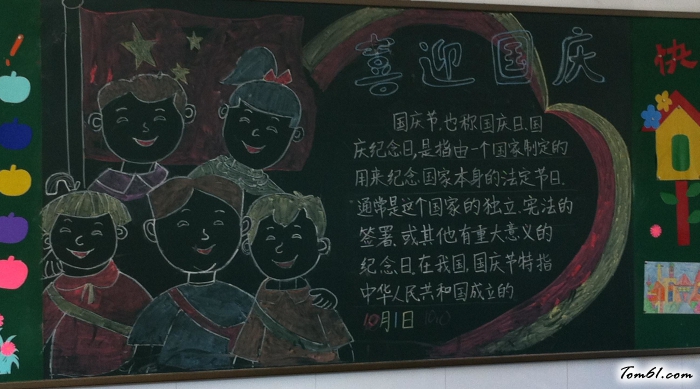 喜迎国庆
国庆节,也称国庆日、国
庆纪念日,是指由一个国家制定的
用来纪念国家本身的法定节日。
通常是这个国家的独立、宪法的
签署、或其他有重大意义的
纪念日。在我国,国庆节特指
中华人民共和国成立的
10月1日
诀
Tom61.com